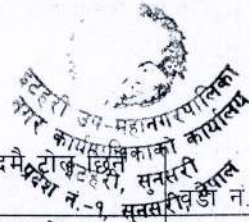 इटहरी उप-महानगरपालिका
नगर कार्यपालिकाको कार्यालय
इटहरी, सुनसरी
प्रदेश नं.-१, सुनसरी, नेपाल
वडा नं.